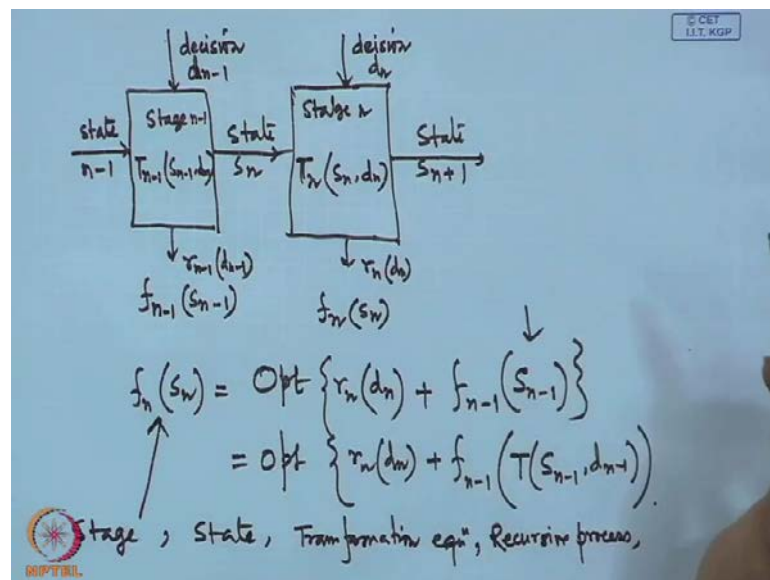 © CET
I.I.T. KGP
decision
dn-1
deision
dn
state
n-1
Stage n-1
Tn-1(Sn-1,dn)
State
Sn
Stalge n
Tn(Sn,dn)
State
Sn+1
rn-1(dn-1)
fn-1(Sn-1)
rn(dn)
fn(Sn)
fn(Sn) = Opt {rn(dn) + fn-1(Sn-1)}
= opt {rn(dn) + fn-1(T(Sn-1,dn-1))
Stage, State, Tranformation eqn, Recursive process,
NPTEL